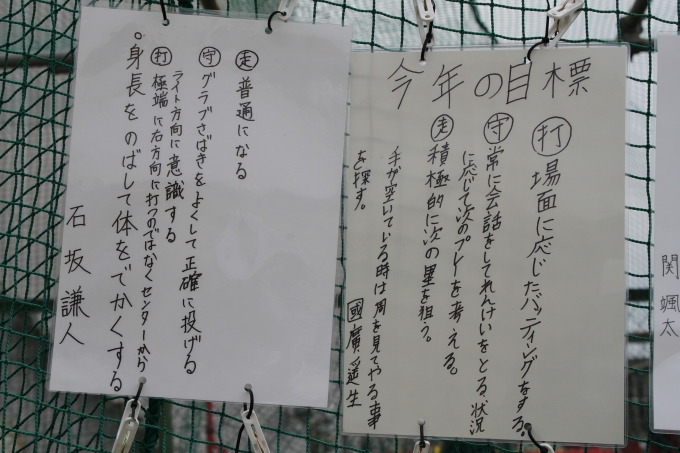 今年の目標
打 場面に応じたバッティングをする。
守 常に会話をしてれんけいをとる、状況
に応じて次のプレーを考える。
走 積極的に次の塁を狙う。
手が空いている時は周を見てやる事
を探す。
國廣 遥生
走 普通になる
守 グラブさばきをよくして正確に投げる
打 極端に右方向に打つのではなくセンターから
ライト方向に意識する
。身長をのばして体をでかくする
石坂謙人
関 颯太